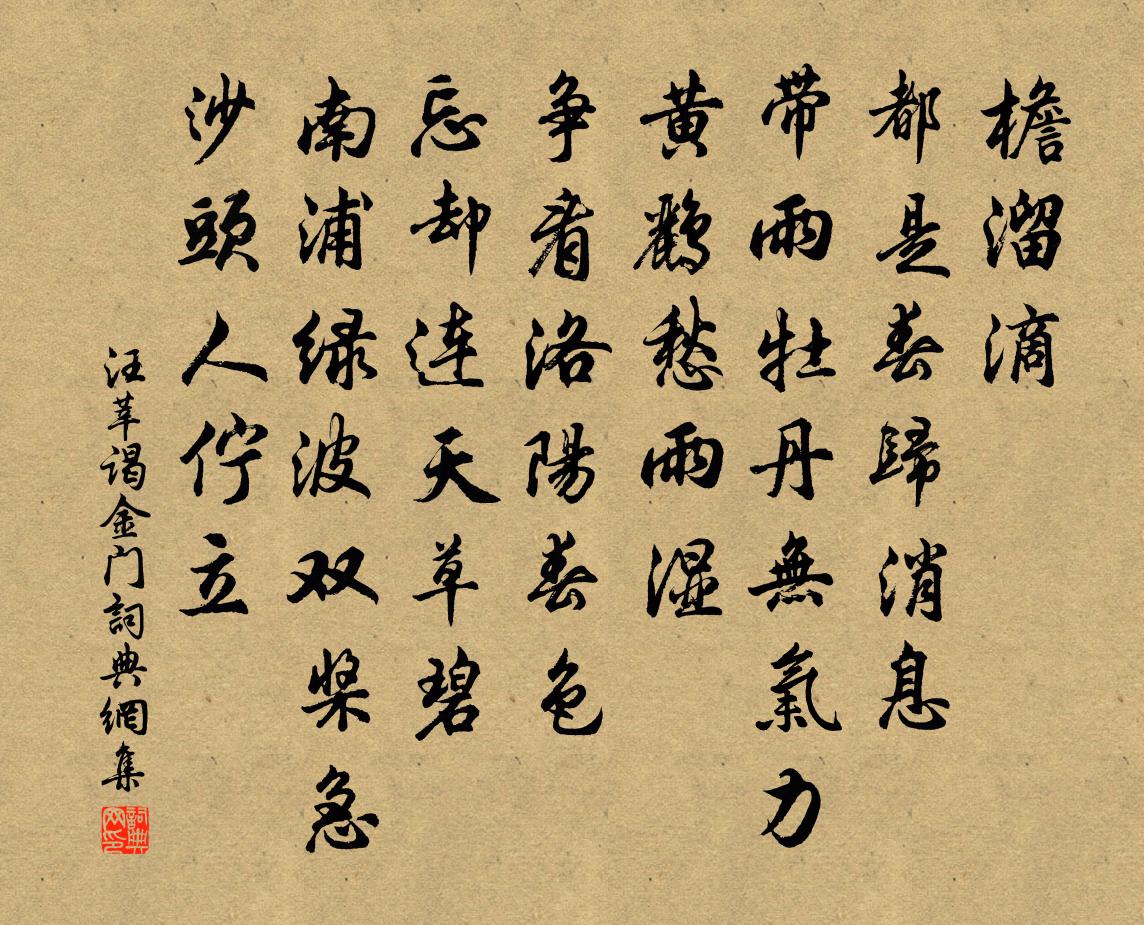 檐溜滴
都是春歸消息
带雨牡丹無氣力
黄鸝愁雨湿
争看洛陽春色
忘却連天草碧
南浦緑波双桨急
沙頭人佇立
汪莘谒金门詞典網集
詞典网印